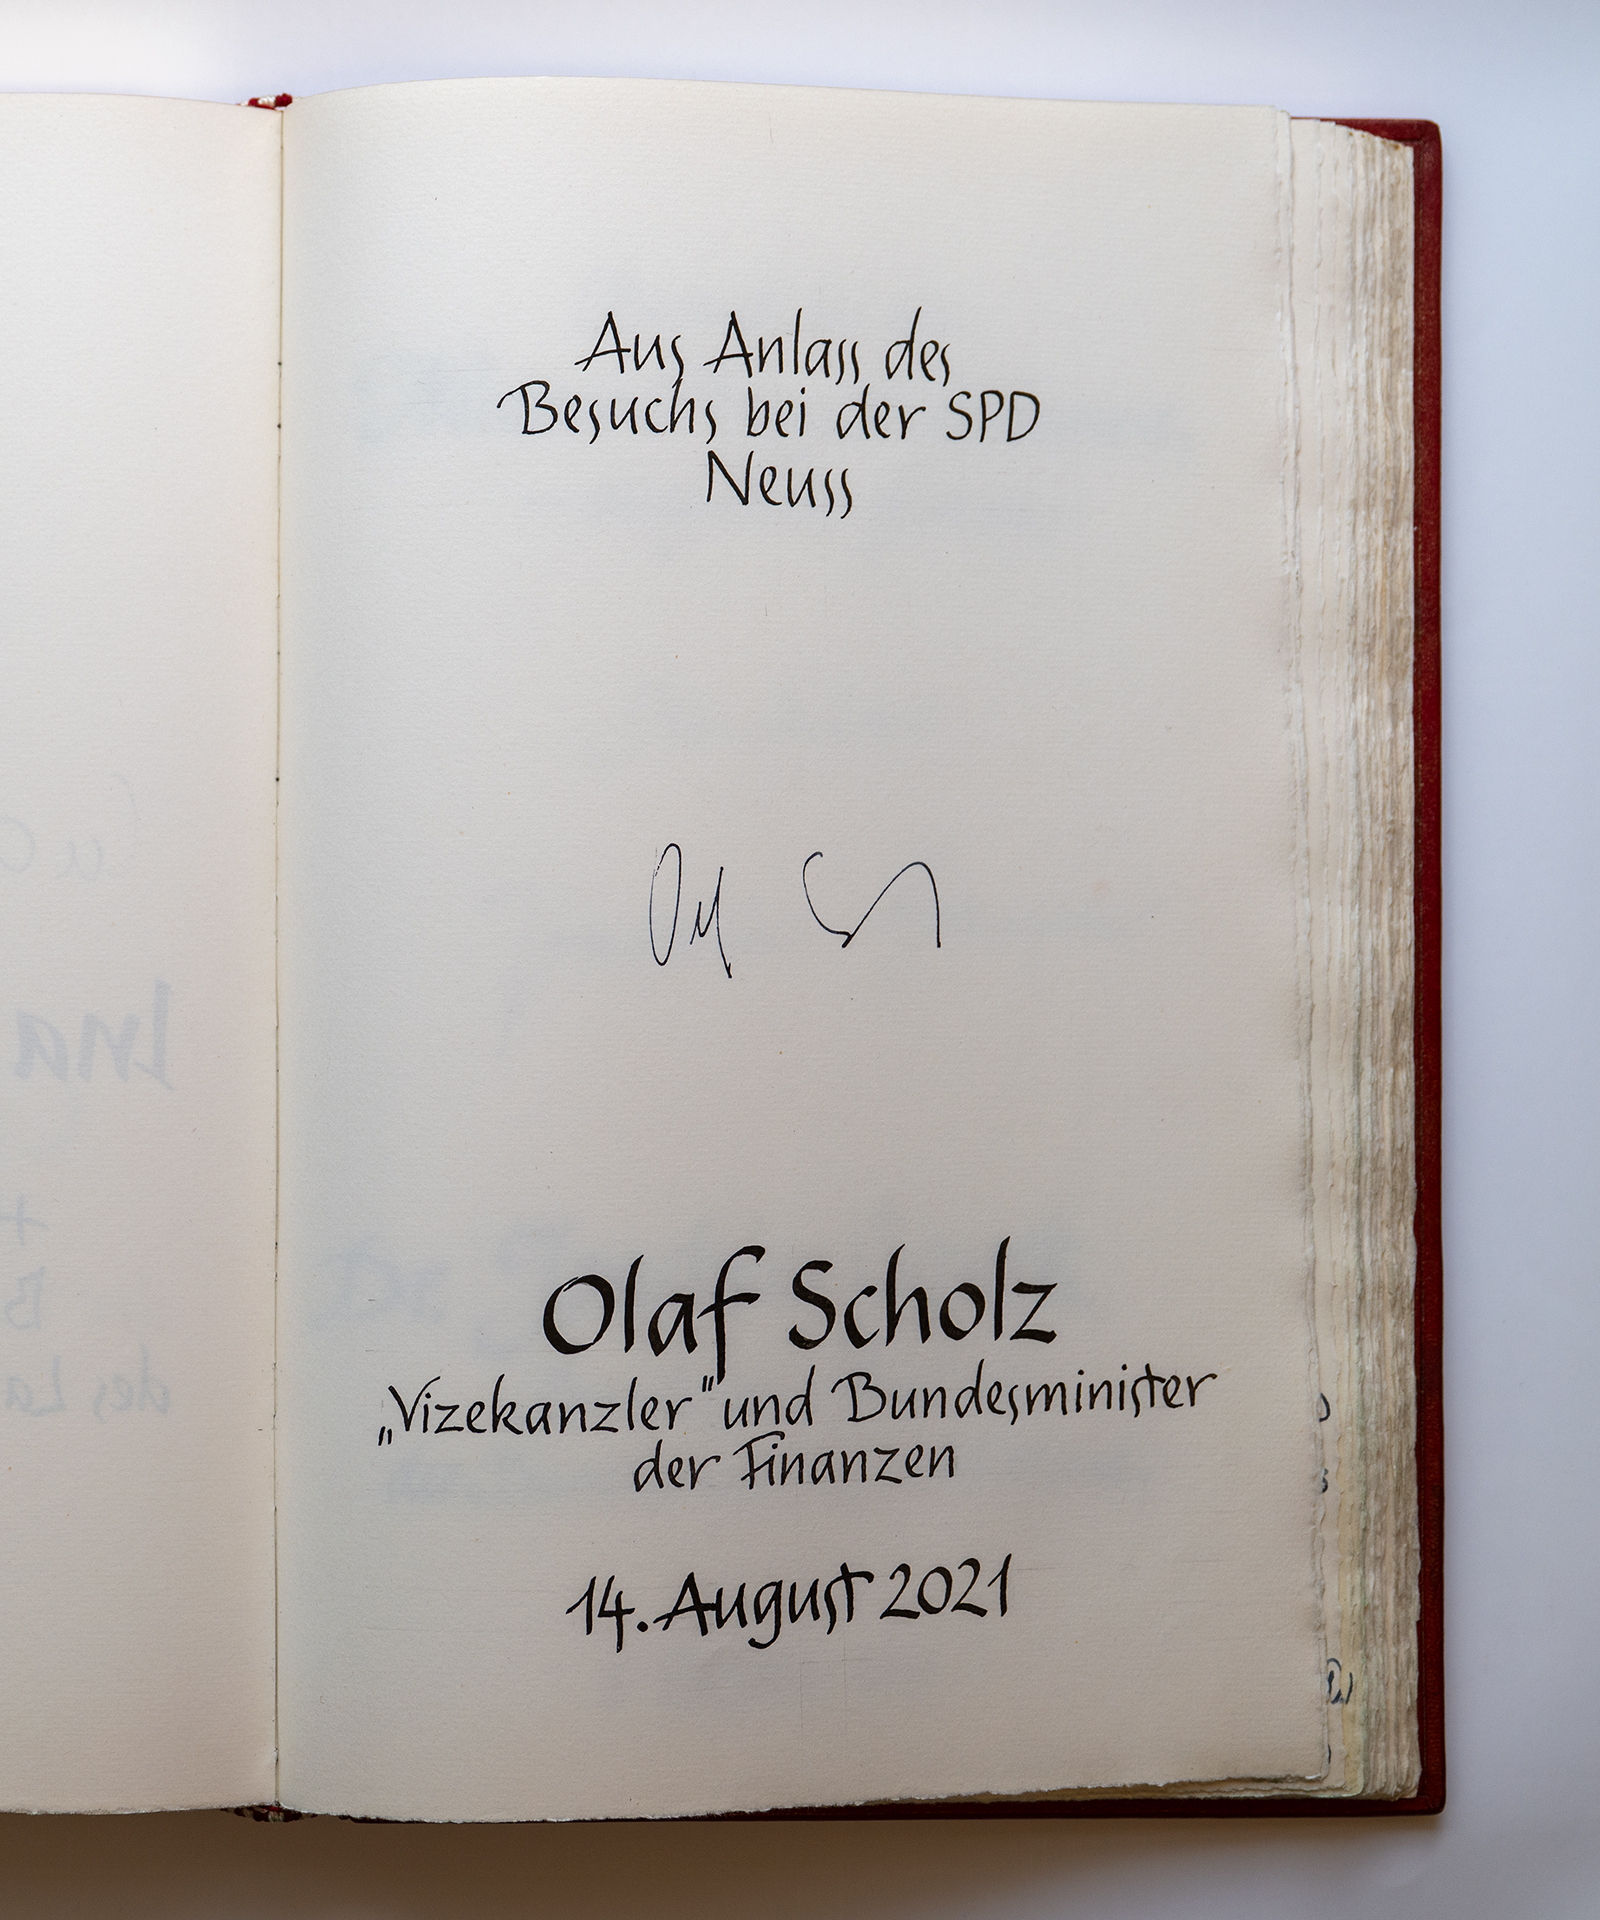 Aus Anlass des
Besuchs bei der SPD
Neuss
Olaf Scholz
„Vizekanzler" und Bundesminister
der Finanzen
14. August 2021